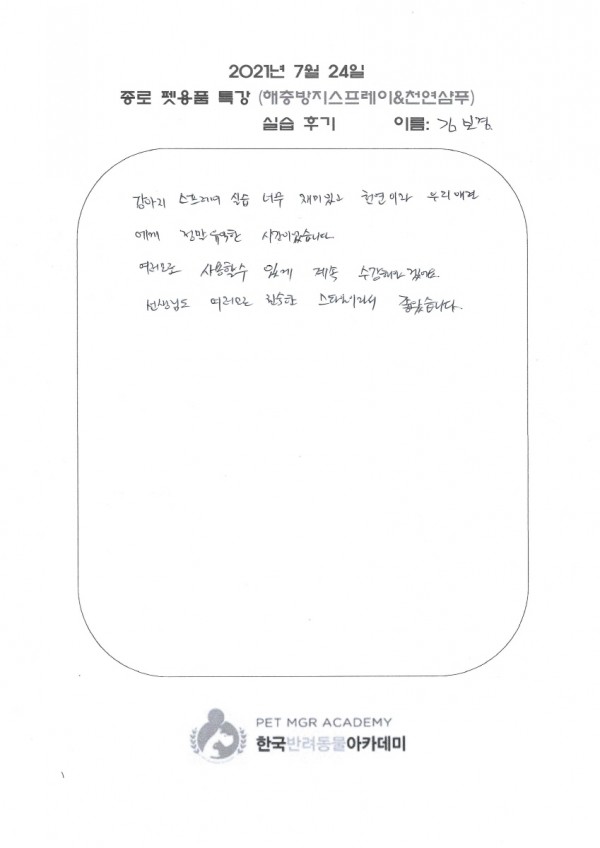 2021년 7월 24일
종로 펫용품 특강 (해충방지스프레이&천연샴푸)
실습 후기 이름: 김보경.
스프레이 실습 너무 재미있고 천연이라 우리애견
에게 정말 유익한 시간이었습니다.
여러모로 사용할수 있게 계속 수강해야 겠어요.
선생님도 여러모로 스타일이라서 좋았습니다.
PET MGR ACADEMY
한국반려동물아카데미